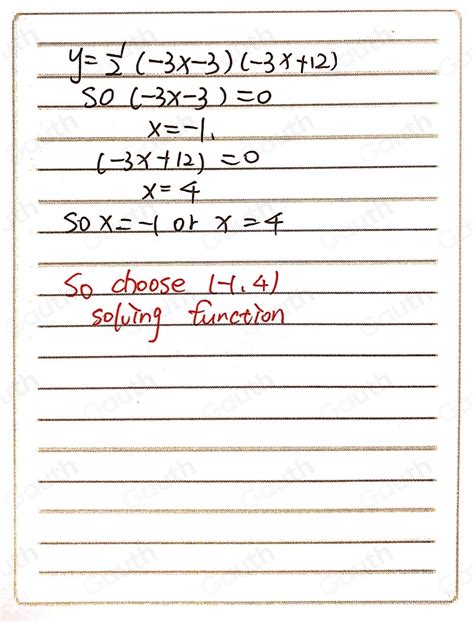 y=½(-3x-3)(-3x+12)
SO (-3x-3)=0
x=-1.
(-3x+12)=0
x=4
So x=-1 or x=4
So choose (-1,4)
solving function